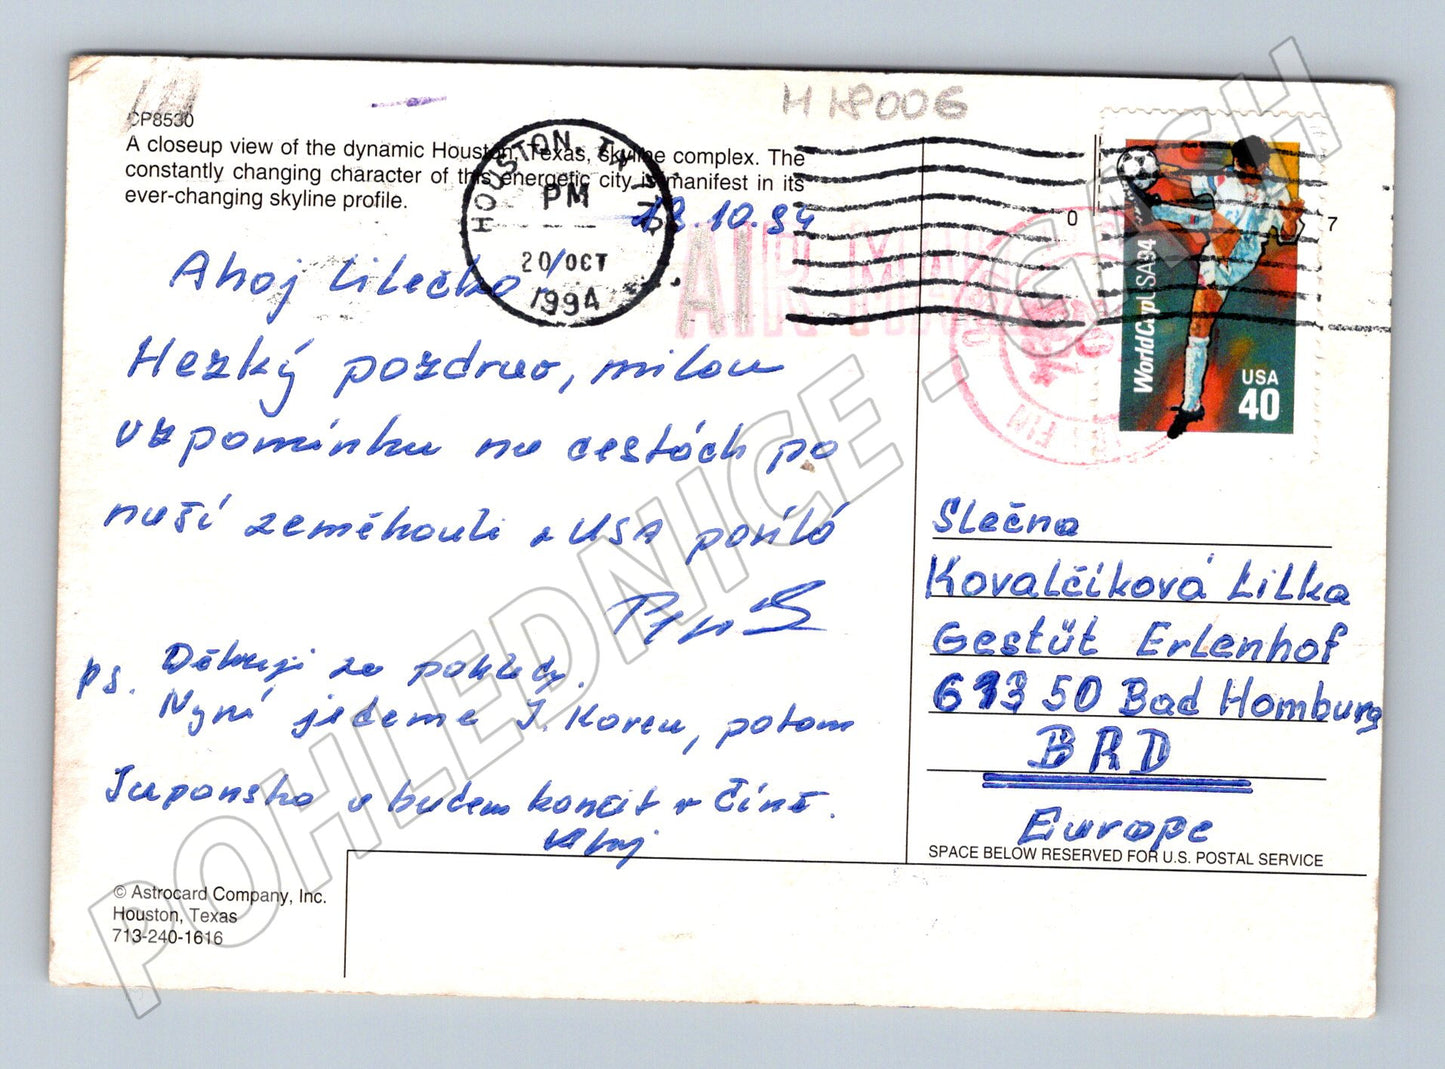 H K8006
CP8530
A closeup view of the dynamic Houston, Texas, skyline complex. The
constantly changing character of this energetic city is manifest in its
ever-changing skyline profile.
HOUSTON, TX
PM
20/OCT
1994
18.10.94
AIR MAIL
Ahoj Lilečko.
Hezký pozdrav, milou
vzpomínku na cestách po
naší zeměkouli z USA posílá
ps. Děkuji za pohledy.
Nyní jedeme J. Korea, potom
Japonsko a budem končit v Číně.
Ahoj
© Astrocard Company, Inc.
Houston, Texas
713-240-1616
WorldCupUSA94
USA
40
Slečna
Kovalčíková Lilka
Gestüt Erlenhof
61350 Bad Homburg
BRD
Europe
SPACE BELOW RESERVED FOR U.S. POSTAL SERVICE
POHLEDNICE - GASH